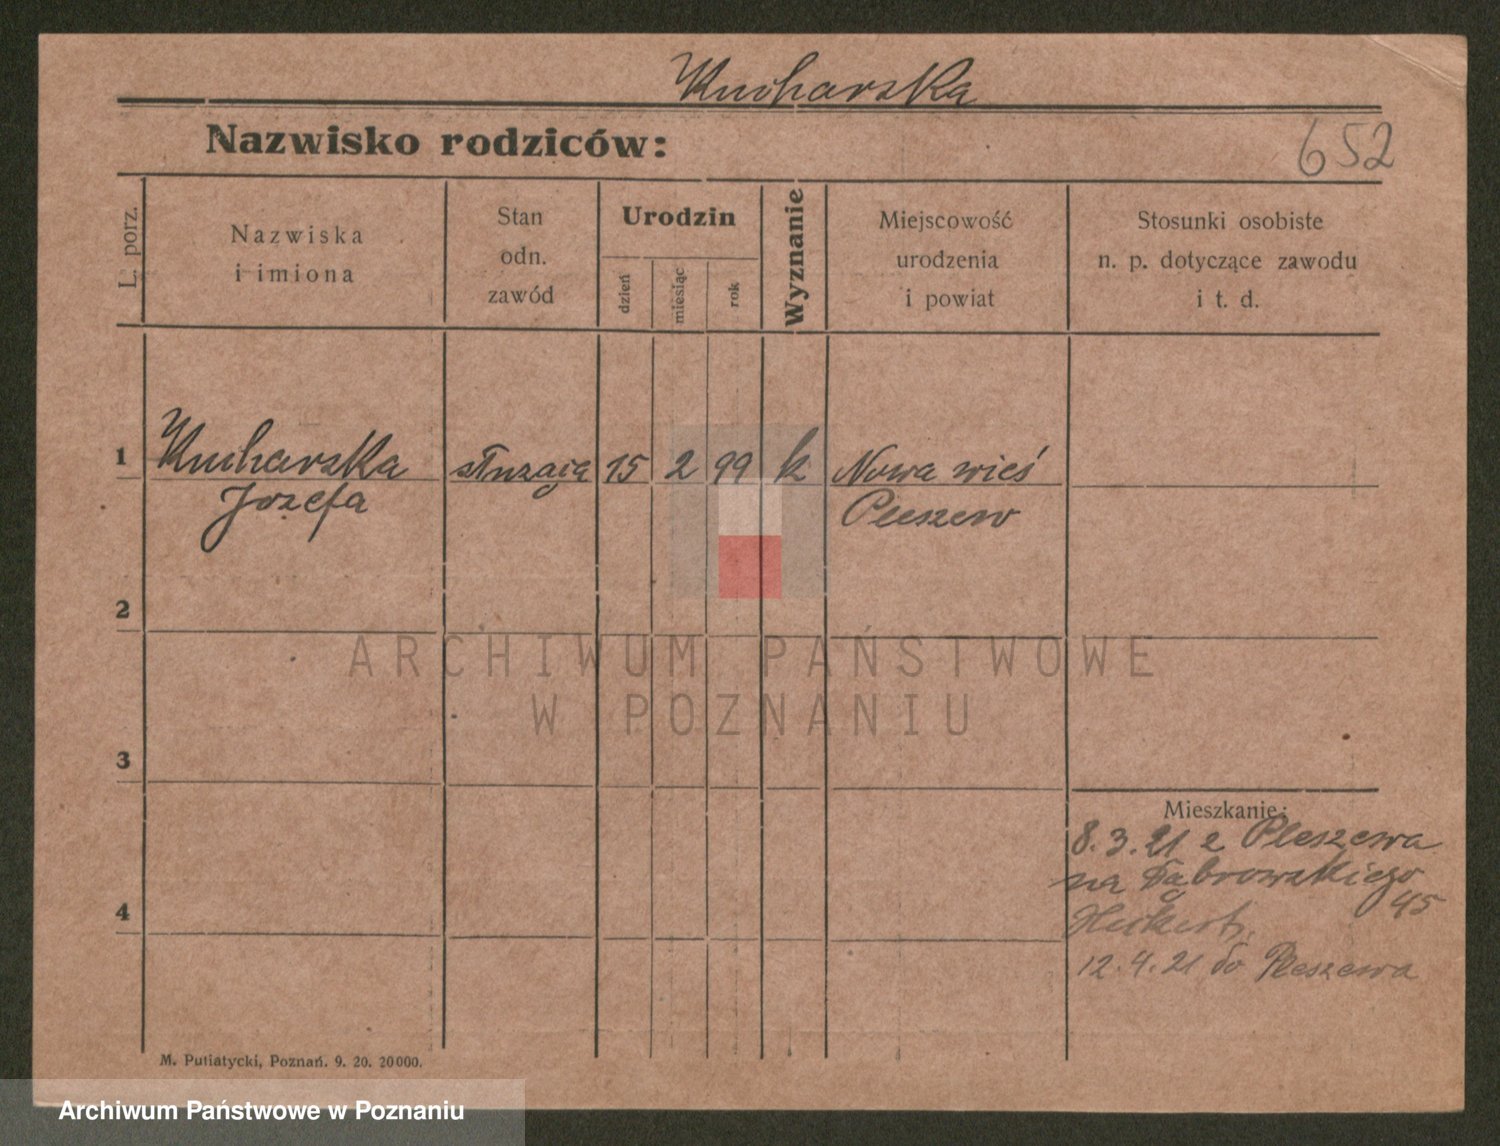 Kucharska
Nazwisko rodziców:
652
L. porz.
Nazwiska
i imiona
Stan
odn.
zawód
Urodzin
dzień
miesiąc
rok
Wyznanie
Miejscowość
urodzenia
i powiat
Stosunki osobiste
n. p. dotyczące zawodu
i t. d.
1
Kucharska
Józefa
służąca
15
2
99
k
Nowa wieś
Pleszew
2
ARCHIWUM PAŃSTWOWE
W POZNANIU
3
Mieszkanie:
8.3.21 z Pleszewa
na Dąbrowskiego
45
4
12.4.21 do Pleszewa
M. Putiatycki, Poznań. 9. 20. 20000.
Archiwum Państwowe w Poznaniu